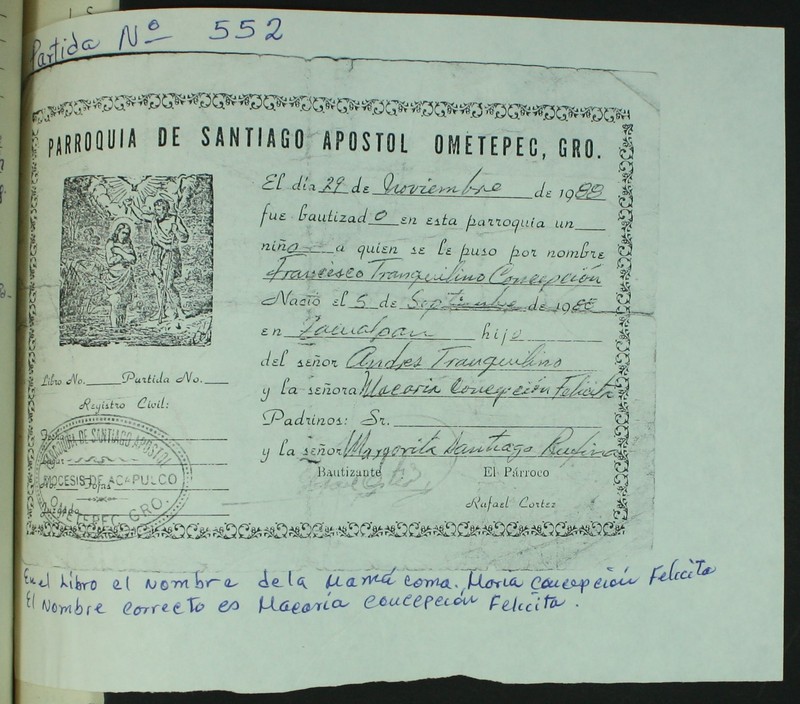 Partida Nº 552
PARROQUIA DE SANTIAGO APOSTOL OMETEPEC, GRO.
El día 29 de Noviembre de 1988
fue bautizado en esta parroquia un
niño a quien se le puso por nombre
Francisco Tranquilino Concepción
Nació el 5 de Septiembre de 1988
en Zacualpan hijo
del señor Andres Tranquilino
y la señora Macaria Concepción Felicita
Padrinos: Sr.
y la señora Margarita Santiago Rufina
Bautizante El Párroco
Rafael Cortez
Libro No. Partida No.
Registro Civil:
Fojas
Juzgado
PARROQUIA DE SANTIAGO APOSTOL
DIOCESIS DE ACAPULCO
OMETEPEC, GRO.
En el Libro el Nombre de la Mamá coma. Maria Concepción Felicita
El Nombre correcto es Macaria Concepción Felicita.